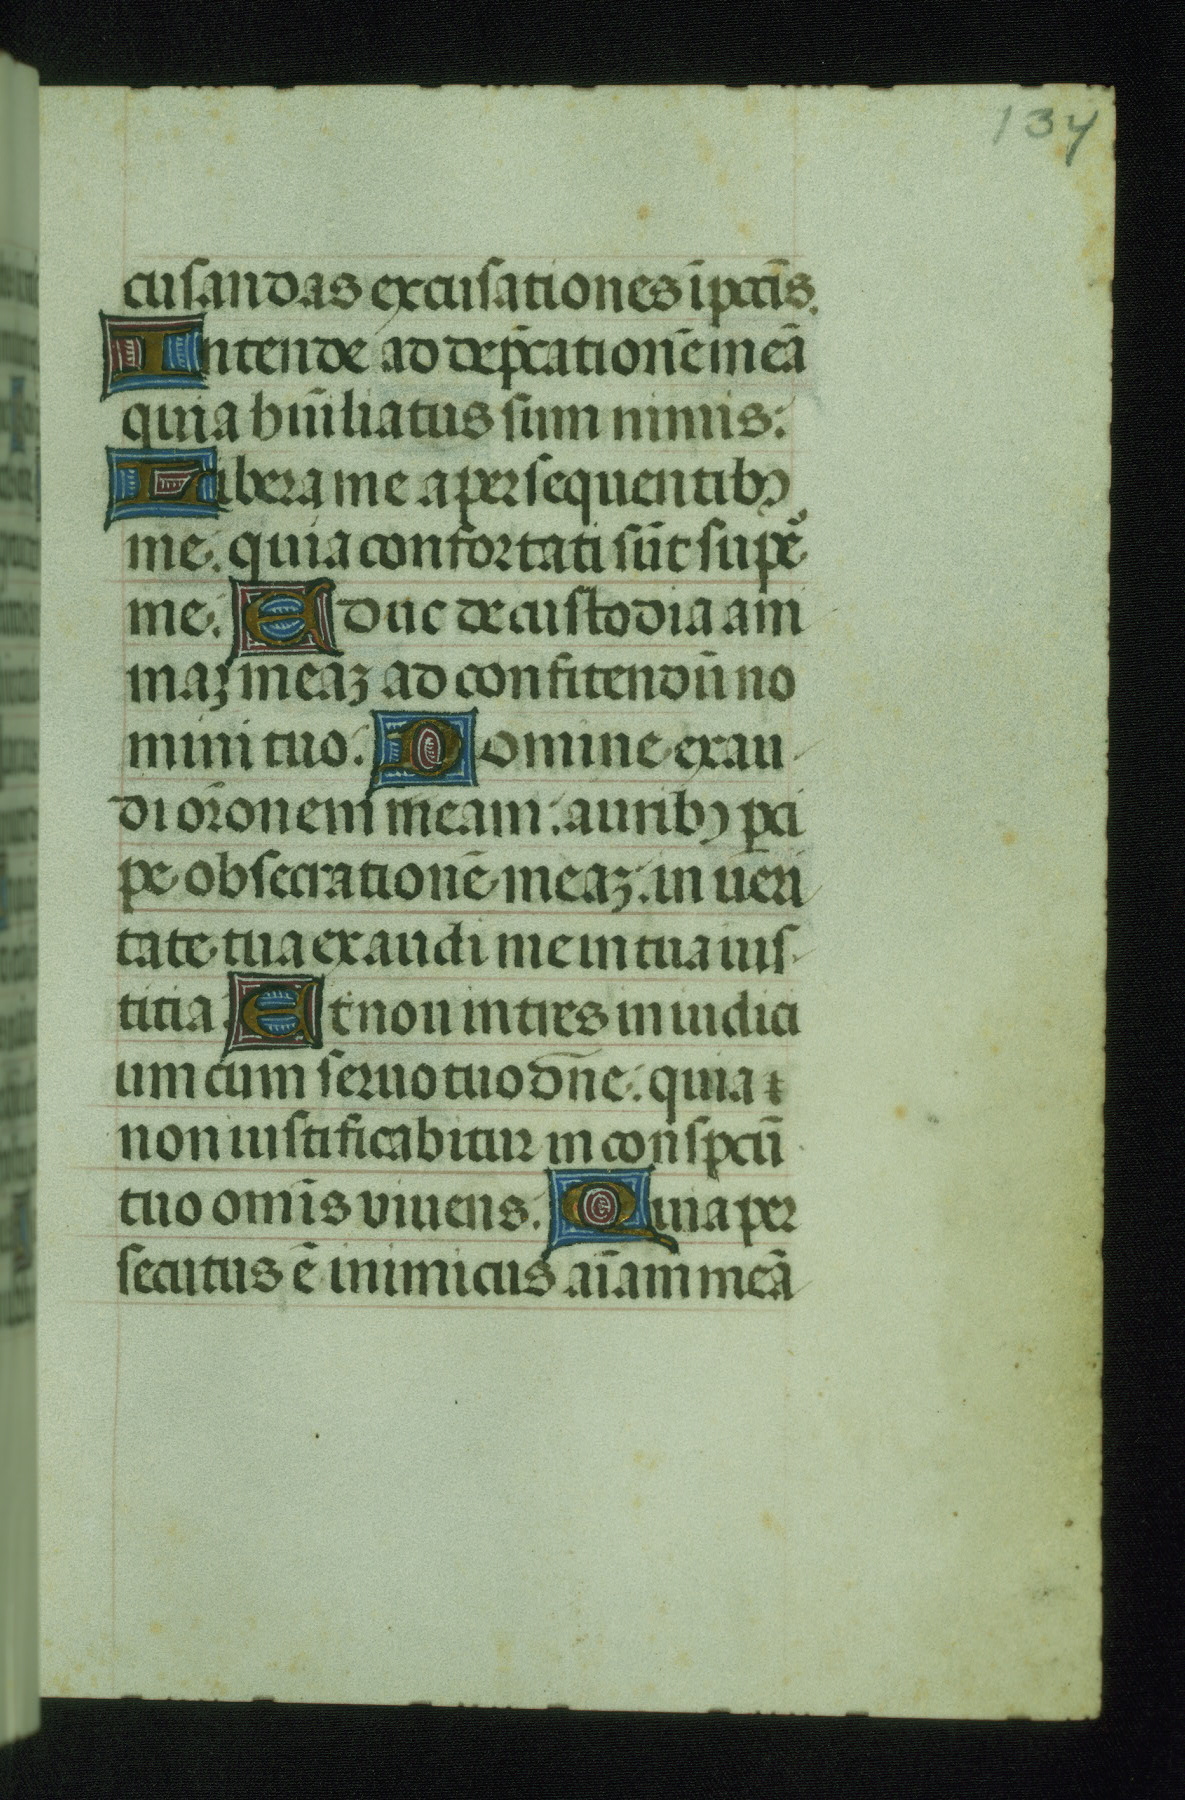 134
cusandas excusationes ī pctīs.
Intende ad dep̄cationē meā
quia hūiliatus sum nimis:
Libera me a persequentibꝫ
me. quia confortati sūt supꝰ
me. Educ de custodia ani
maꝫ meaꝫ ad confitendū no
mini tuo. Domine exau
di or̄onem meam: auribꝫ ꝑci
pe obsecrationē meaꝫ. in ueri
tate tua exaudi me in tua ius
titia. Et non intres in iudici
um cum seruo tuo dn̄e: quia
non iustificabitur in conspctū
tuo omīs viuens. Quia per
secutus ē inimicus aīam meā